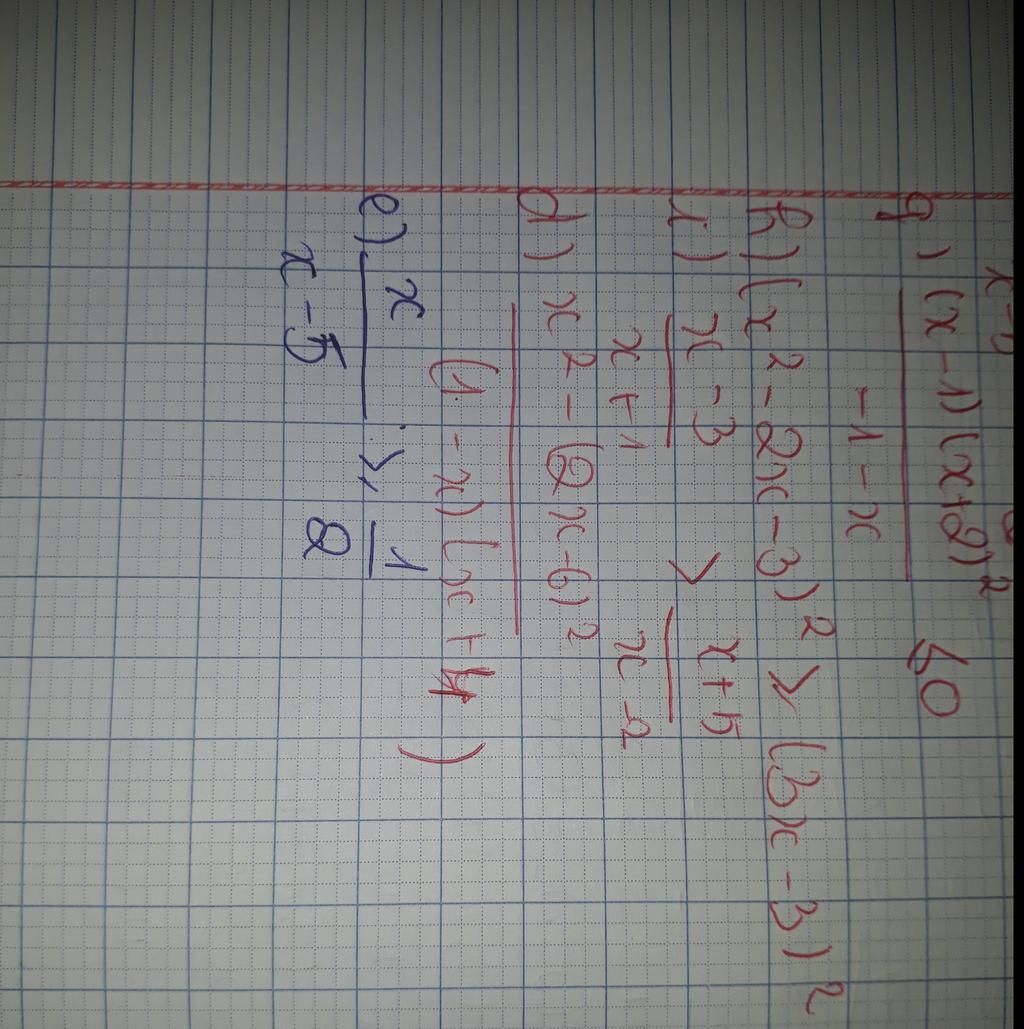 g) (x-1)(x+2)² ≤0
-1-x
h) (x²-2x-3)² ⩾ (3x-3)²
i) x-3 > x+5
x+1 x-2
d) x²-(2x-6)²
(1-x)(x+4)
e) x ⩾ 1
x-5 2